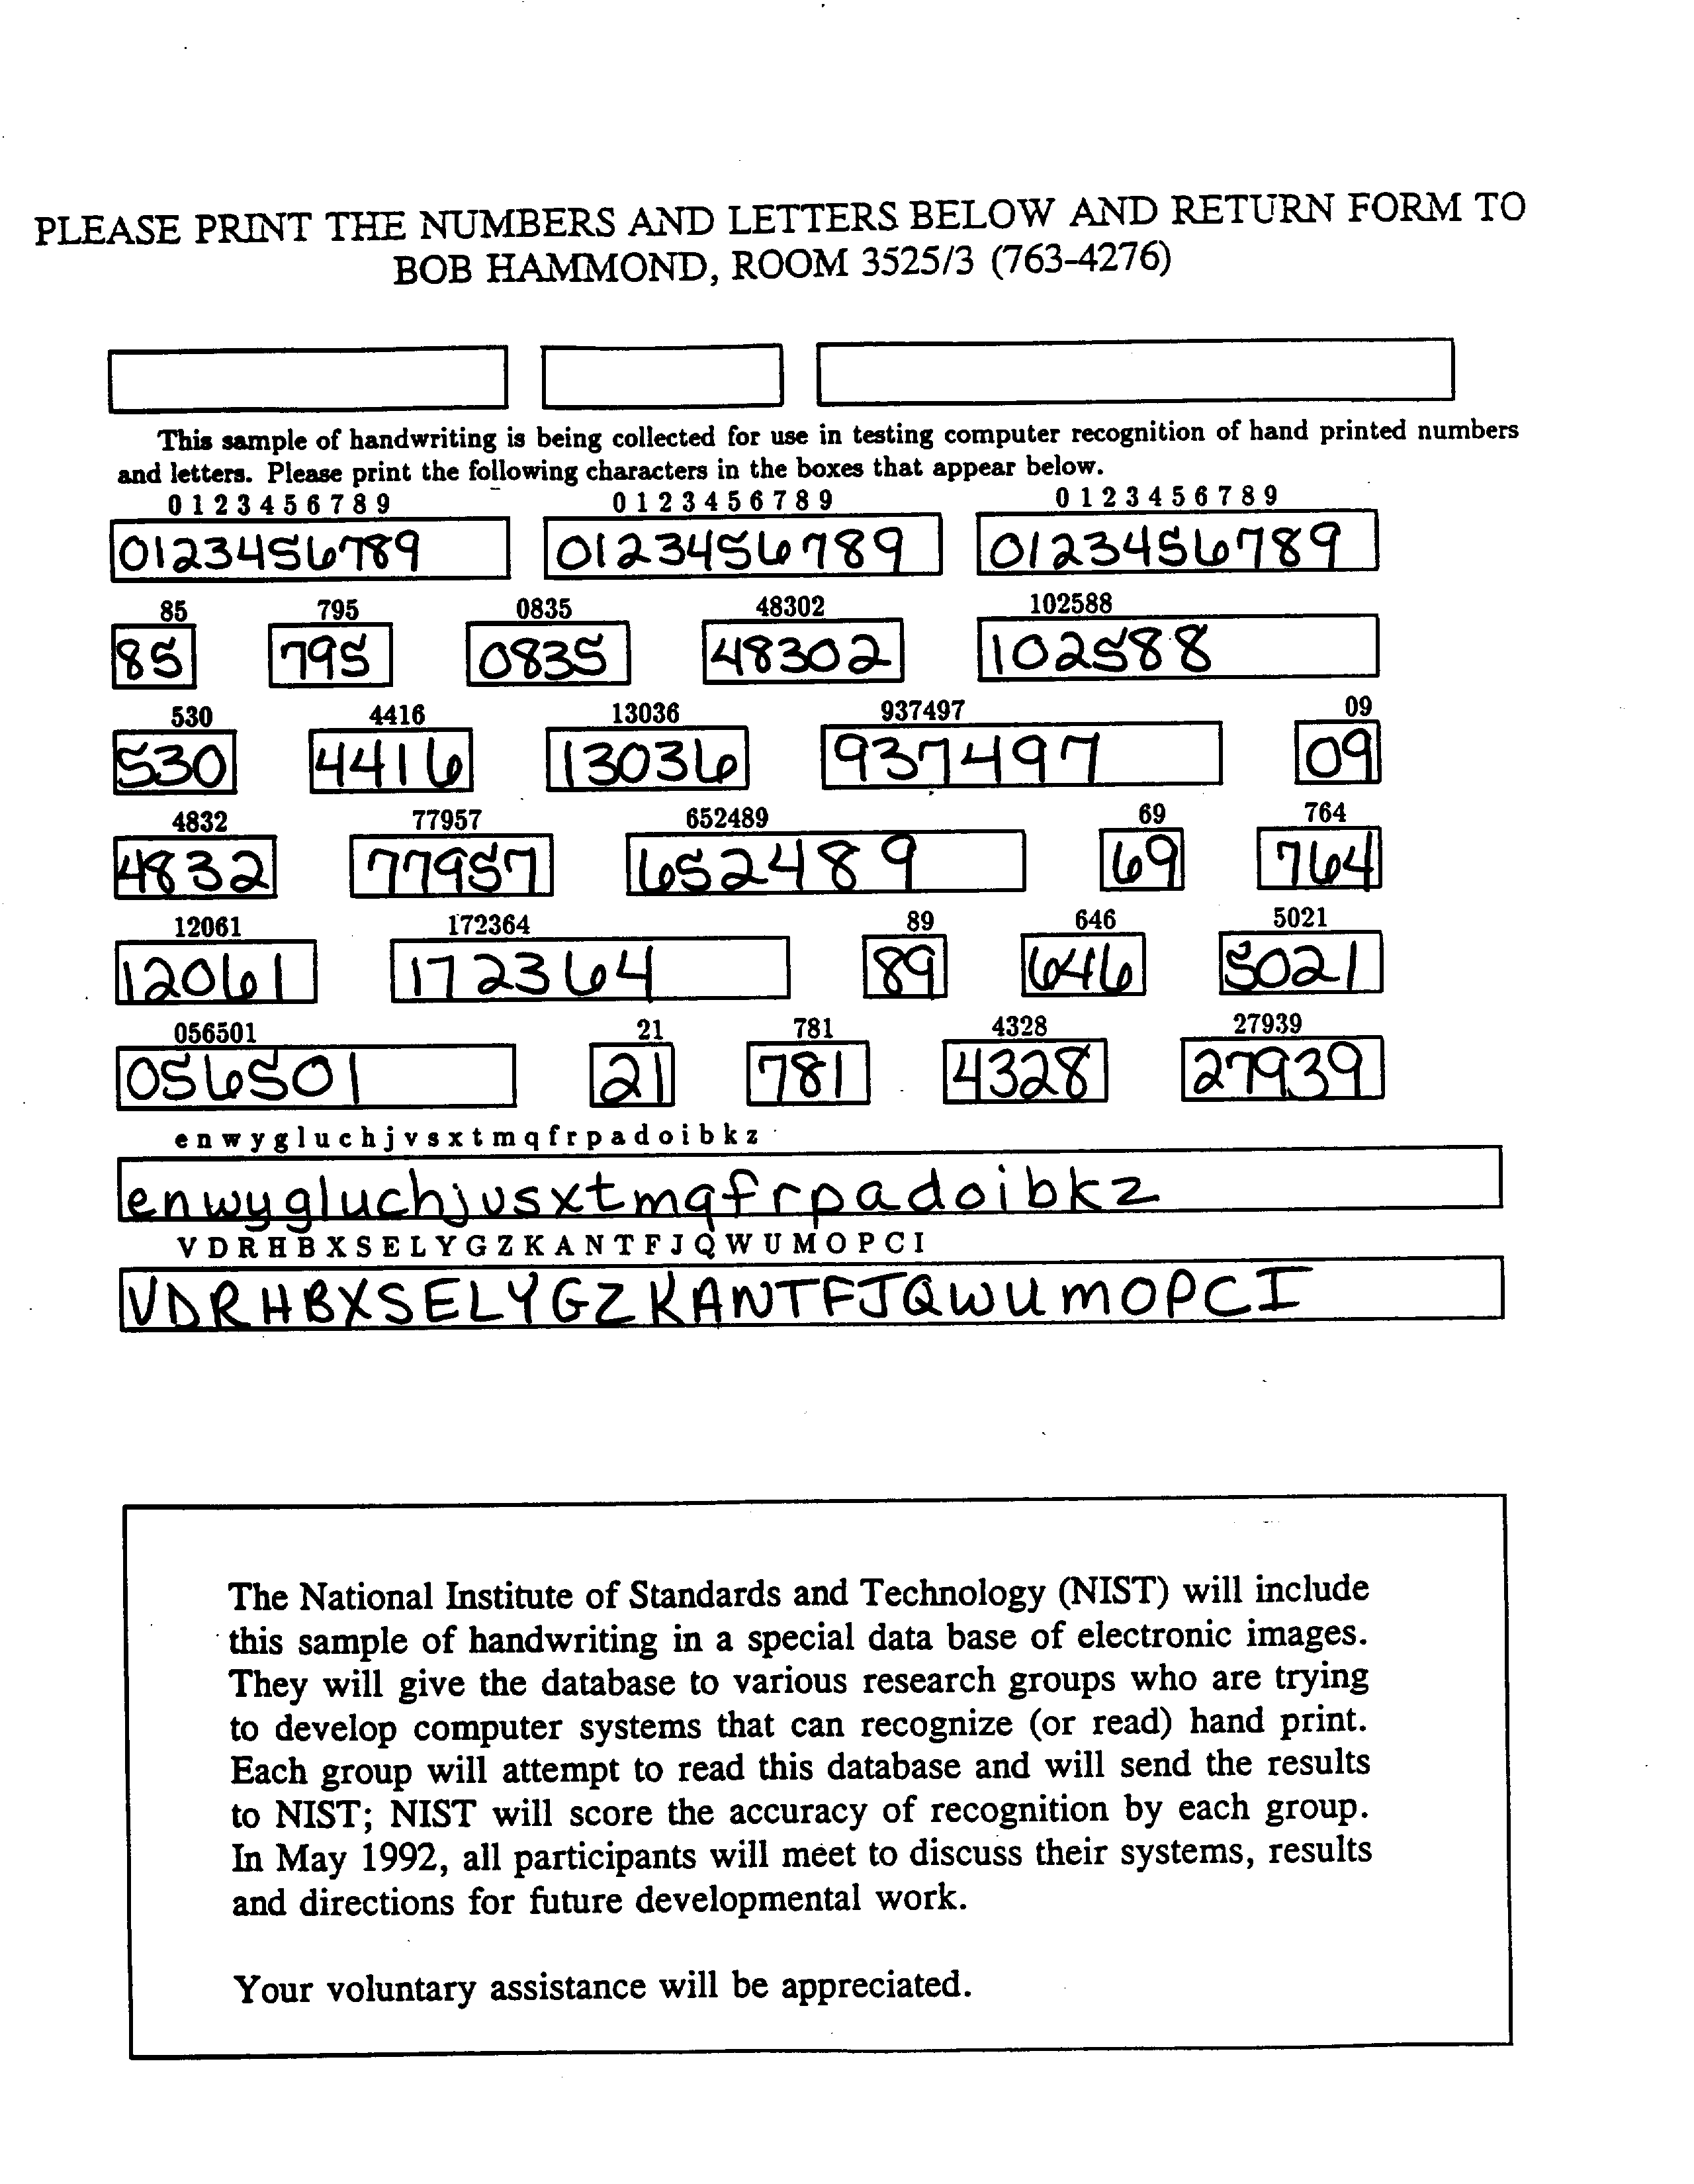 PLEASE PRINT THE NUMBERS AND LETTERS BELOW AND RETURN FORM TO
BOB HAMMOND, ROOM 3525/3 (763-4276)
This sample of handwriting is being collected for use in testing computer recognition of hand printed numbers
and letters. Please print the following characters in the boxes that appear below.
0 1 2 3 4 5 6 7 8 9 0 1 2 3 4 5 6 7 8 9 0 1 2 3 4 5 6 7 8 9
0123456789 0123456789 0123456789
85 795 0835 48302 102588
85 795 0835 48302 102588
530 4416 13036 937497 09
530 4416 13036 937497 09
4832 77957 652489 69 764
4832 77957 652489 69 764
12061 172364 89 646 5021
12061 172364 89 646 5021
056501 21 781 4328 27939
056501 21 781 4328 27939
e n w y g l u c h j v s x t m q f r p a d o i b k z
enwygluchjvsxtmqfrpadoibkz
V D R H B X S E L Y G Z K A N T F J Q W U M O P C I
VDRHBXSELYGZKANTFJQWUMOPCI
The National Institute of Standards and Technology (NIST) will include
this sample of handwriting in a special data base of electronic images.
They will give the database to various research groups who are trying
to develop computer systems that can recognize (or read) hand print.
Each group will attempt to read this database and will send the results
to NIST; NIST will score the accuracy of recognition by each group.
In May 1992, all participants will meet to discuss their systems, results
and directions for future developmental work.
Your voluntary assistance will be appreciated.